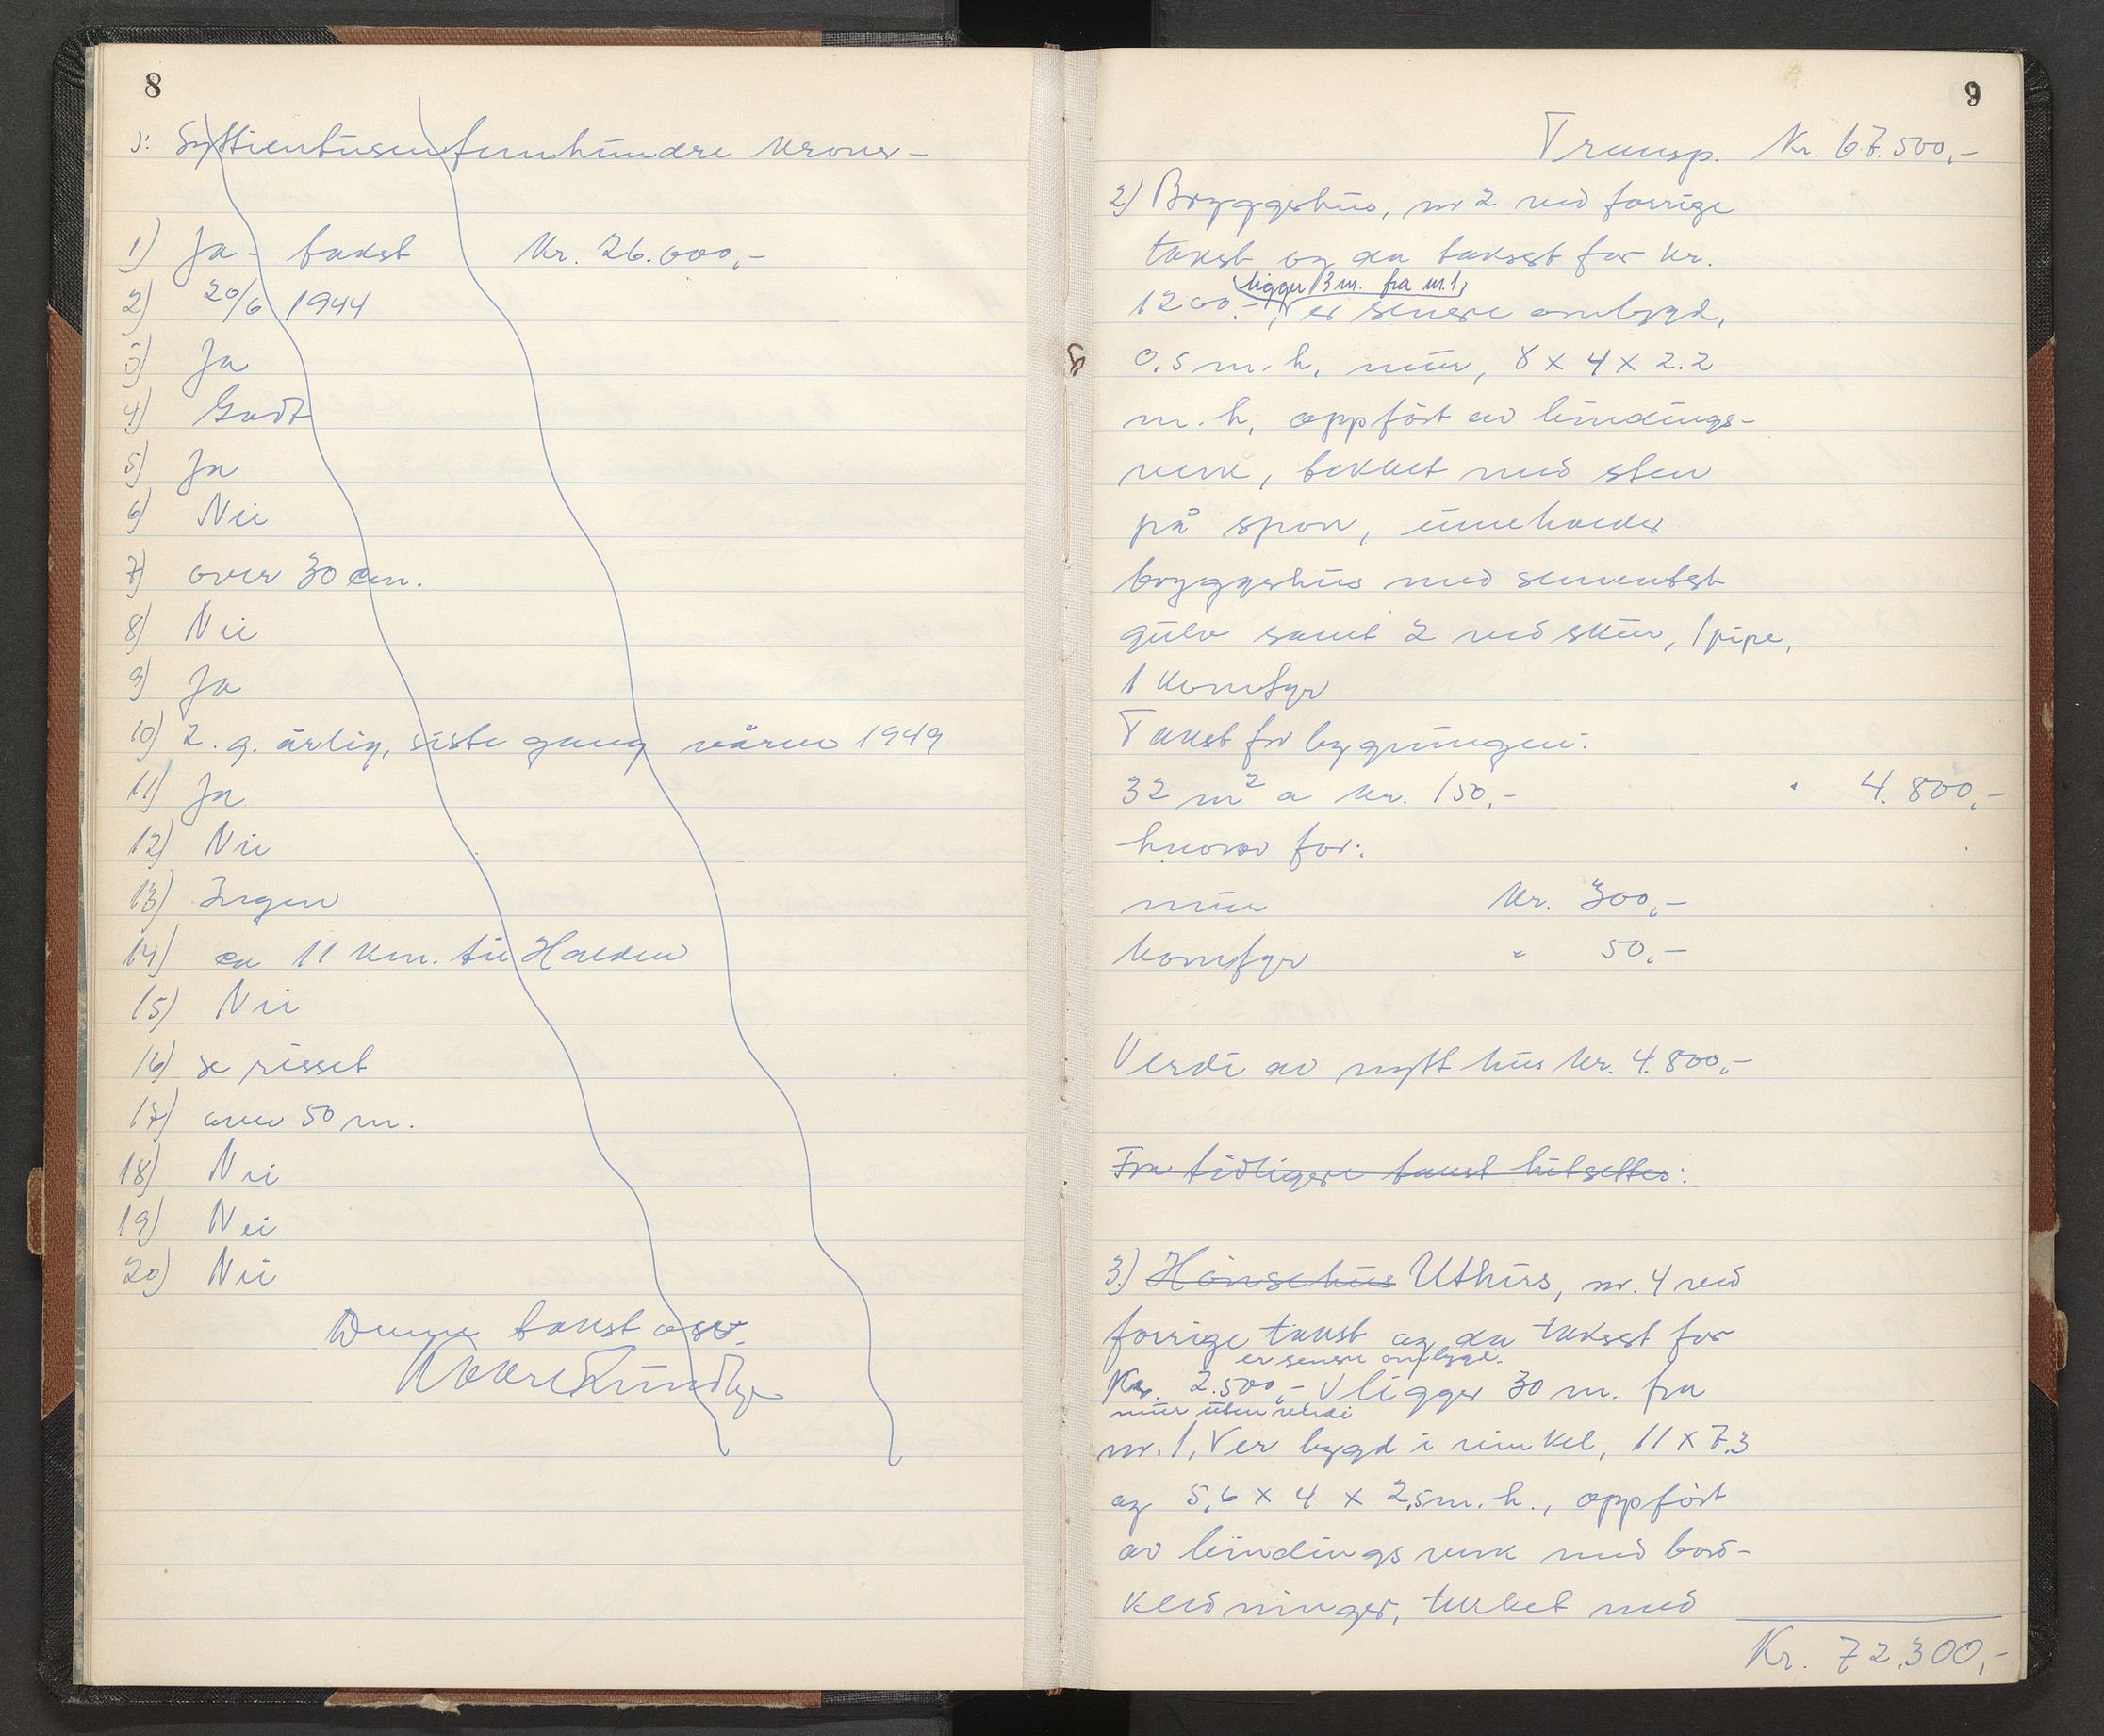 8
ɔ: Syttientusenfemhundre kroner –
1) Ja - takst Kr. 26.000,-
2) 20/6 1944
3) Ja
4) Godt
5) Ja
6) Nei
7) over 30 cm.
8) Nei
9) Ja
10) 2. g. årlig, siste gang våren 1949
11) Ja
12) Nei
13) Ingen
14) ca 11 km. til Halden
15) Nei
16) se risset
17) over 50 m.
18) Nei
19) Nei
20) Nei
Denne takst osv.
9
Transp. Kr. 67.500,-
2) Bryggerhus, nr 2 ved forrige
takst og da taksert for kr.
ligger 3 m. fra nr. 1,
1200.-, er senere ombygd,
0.5 m. h. mur, 8 x 4 x 2.2
m. h, oppført av bindings-
verk, tekket med sten
på spon, inneholder
bryggerhus med sementert
gulv samt 2 vedskur, 1 pipe,
1 komfyr
Takst for bygningen:
32 m² a kr. 150,- " 4.800,-
hvorav for:
mur Kr. 300,-
komfyr " 50,-
Verdi av nytt hus kr. 4.800,-
Fra tidligere takst hitsettes:
3.) Hønsehus Uthus, nr. 4 ved
forrige takst og da taksert for
er senere ombygd.
Kr. 2.500,- V ligger 30 m. fra
mur uten verdi
nr. 1, V er bygd i vinkel, 11 x 7.3
og 5,6 x 4 x 2,5 m. h., oppført
av bindingsverk med bord-
kledninger, tekket med
Kr. 72.300,-